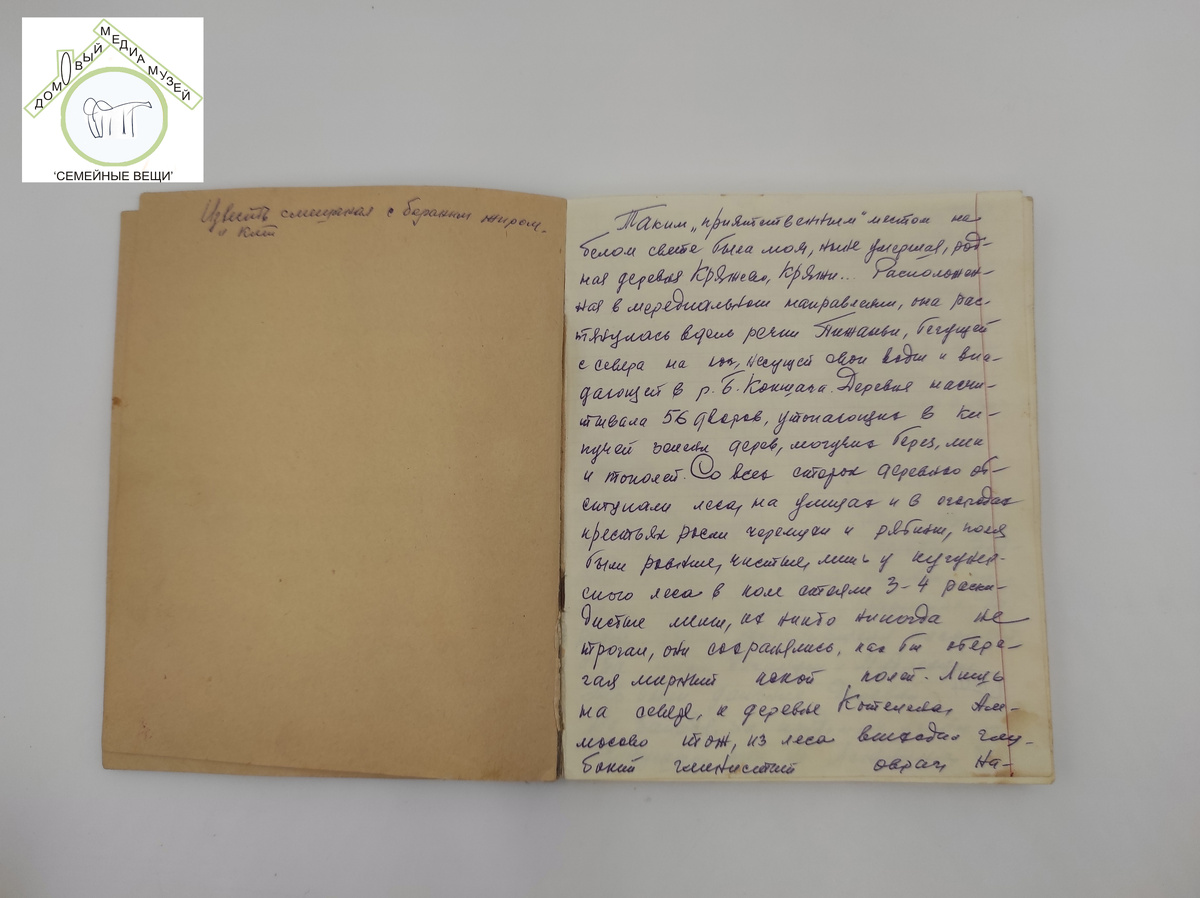 ДОМОВЫЙ МЕДИА МУЗЕЙ
‘СЕМЕЙНЫЕ ВЕЩИ’
Известь смешеная с бараньим жиром.
Таким „приятственным" местом на
белом свете была моя, ныне умершая, род-
ная деревня Кряжево, Кряжи... Расположен-
ная в мередиальном направлении, она рас-
тянулась вдоль речки Пижаньи, бегущей
с севера на юг, несущей свои воды и впа-
дающей в р. Б. Кокшага. Деревня насчи-
тывала 56 дворов, утопающих в ки-
пучей зелени дерев, могучих берез, лип
и тополей. Со всех сторон деревню об-
ступали леса, на улицах и в огородах
крестьян росли черемухи и рябины, поля
были ровные, чистые, лишь у
ского леса в поле стояли 3-4 раски-
дистые липы, их никто никогда не
трогал, они сохранялись, как бы обере-
гая мирный покой полей. Лишь
на севере, к деревне Котельева, Ам-
мосово тож, из леса выходил глу-
бокий глинистый овраг, на-